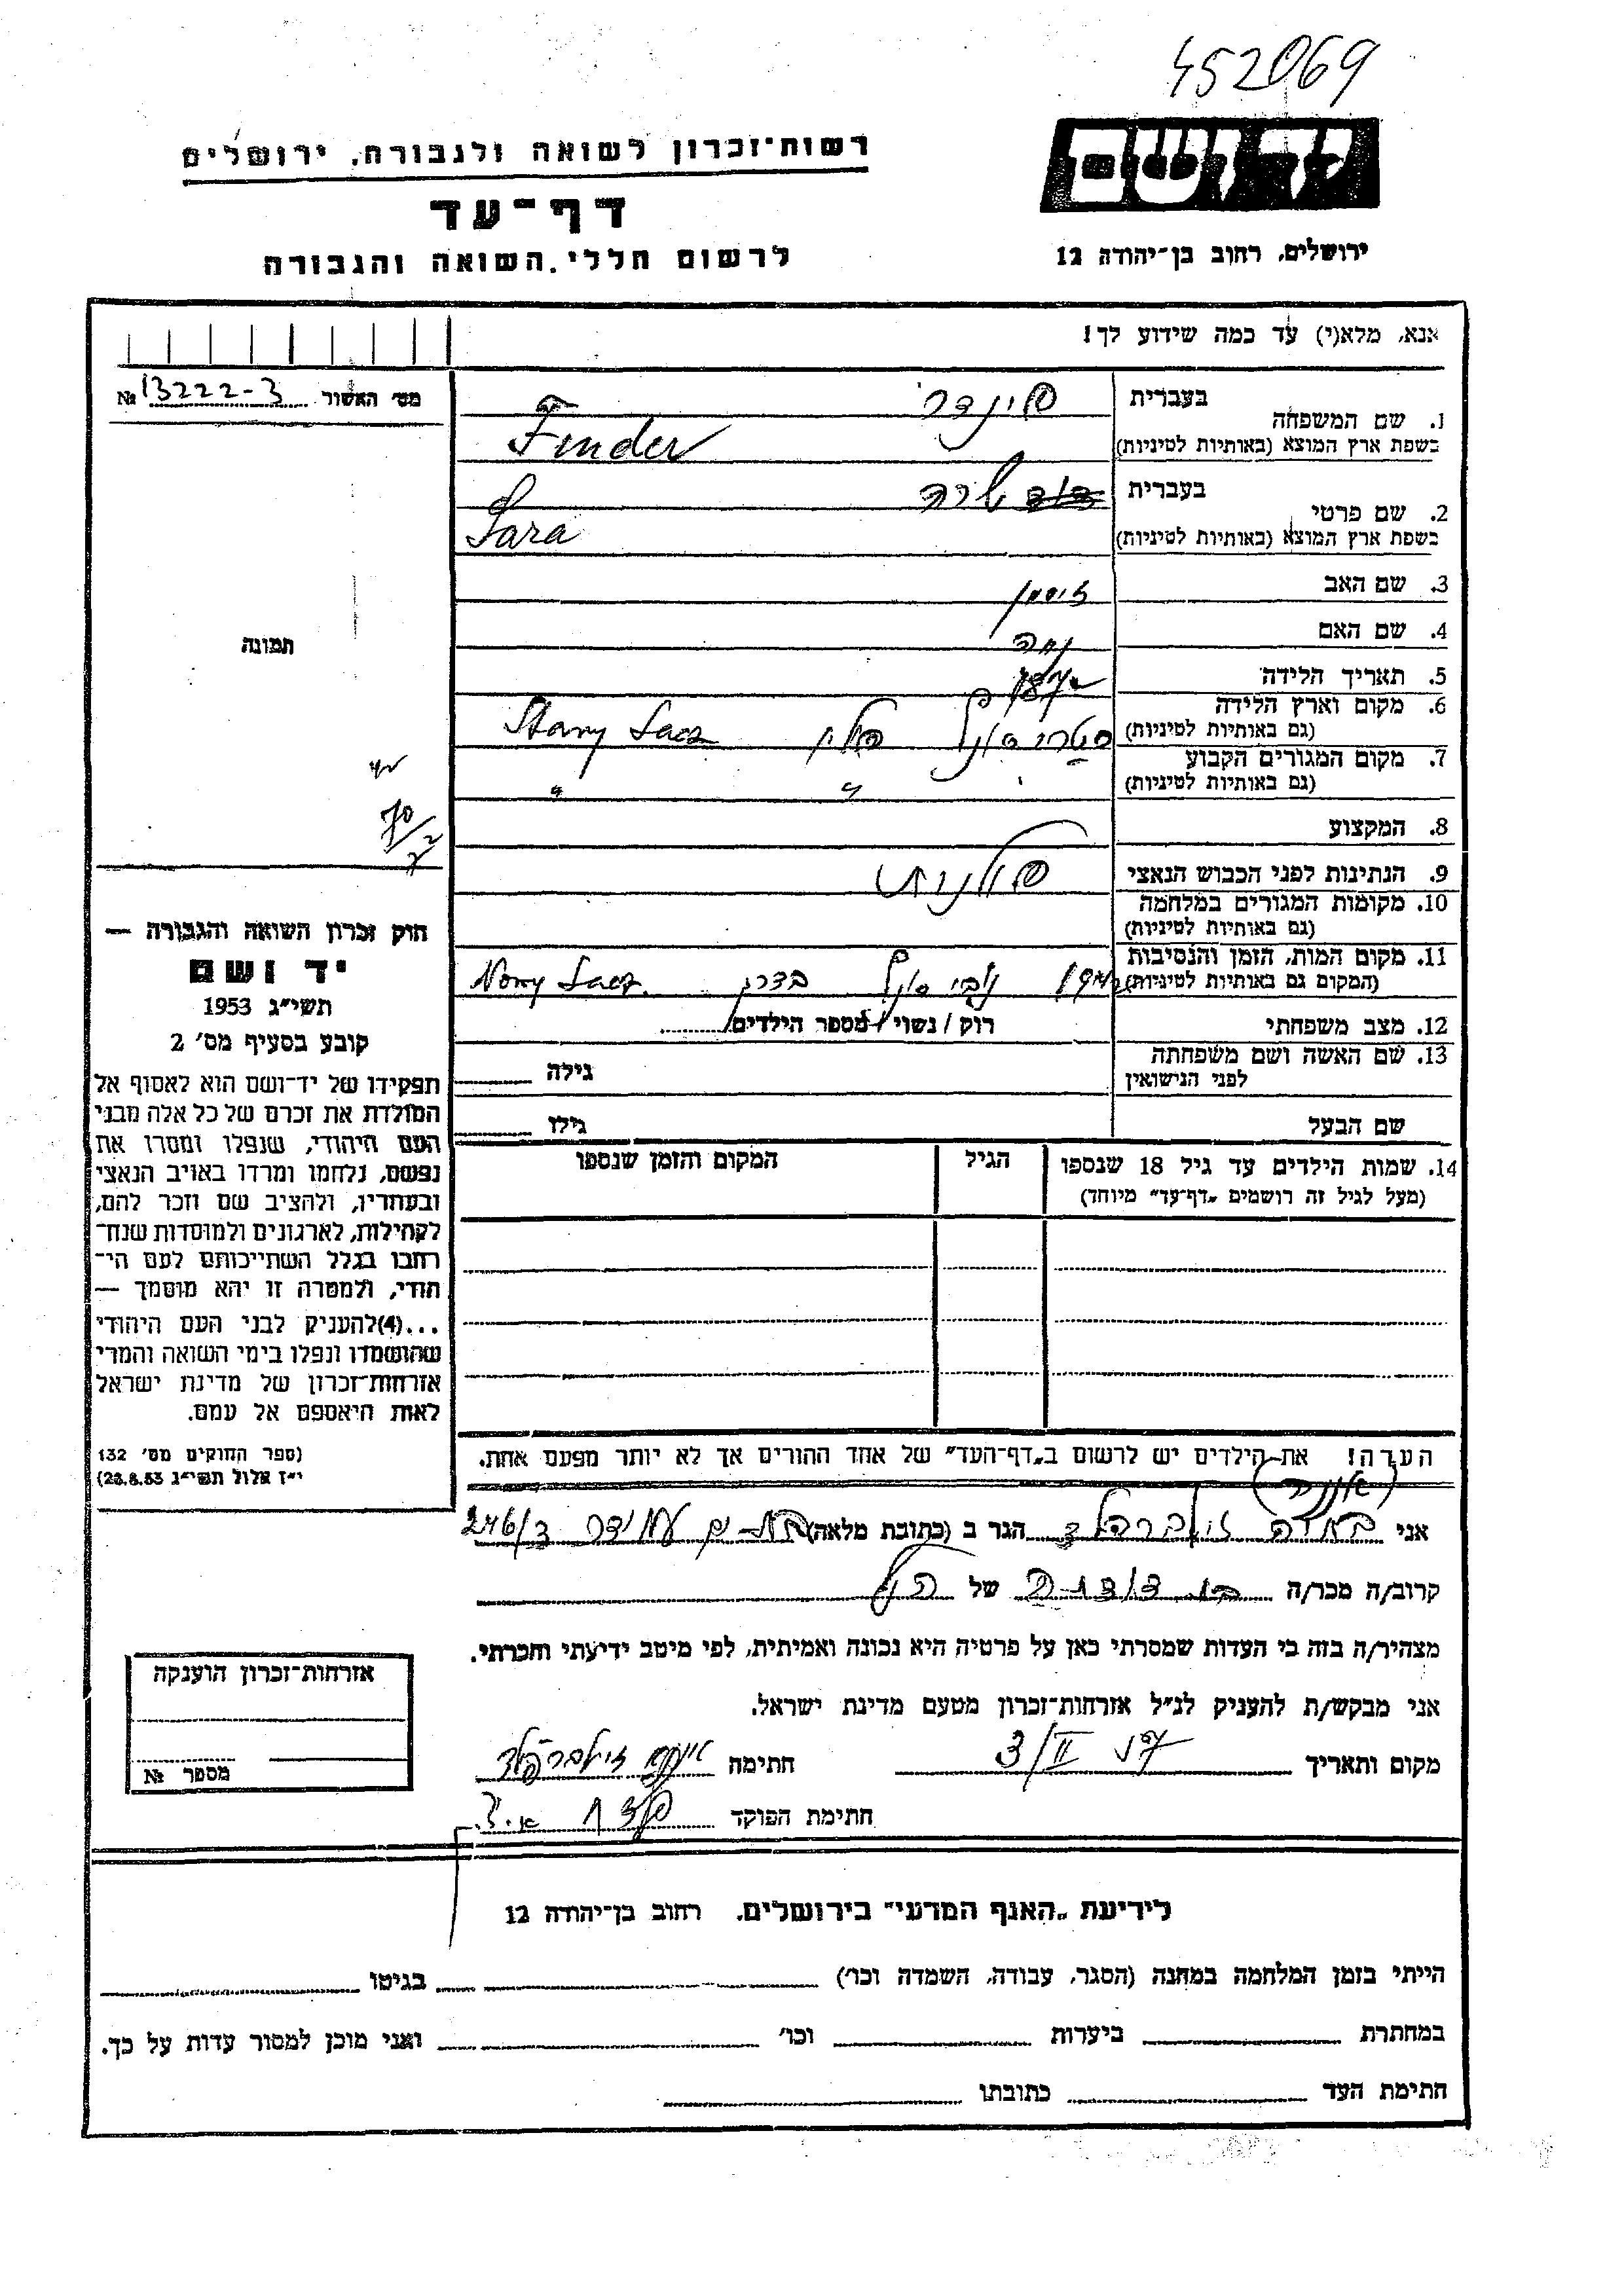 452069
רשות־זכרון לשואה ולגבורה, ירושלים
יד ושם
דף־עד
לרשום חללי השואה והגבורה
ירושלים, רחוב בן־יהודה 12
אנא, מלא(י) עד כמה שידוע לך!
מס׳ האשור № 13222-3
תמונה
1. שם המשפחה
בעברית פינדר
בשפת ארץ המוצא (באותיות לטיניות) Finder
2. שם פרטי
בעברית שרה
בשפת ארץ המוצא (באותיות לטיניות) Sara
3. שם האב זיסמן
4. שם האם
5. תאריך הלידה
6. מקום וארץ הלידה
(גם באותיות לטיניות) פולין Stary Sacz
7. מקום המגורים הקבוע
(גם באותיות לטיניות) " "
8. המקצוע
9. הנתינות לפני הכבוש הנאצי פולנית
10. מקומות המגורים במלחמה
(גם באותיות לטיניות)
11. מקום המות, הזמן והנסיבות
(המקום גם באותיות לטיניות) Nowy Sacz
12. מצב משפחתי רוק / נשוי / מספר הילדים
13. שם האשה ושם משפחתה
לפני הנישואין גילה
שם הבעל גילו
14. שמות הילדים עד גיל 18 שנספו הגיל המקום והזמן שנספו
(מעל לגיל זה רושמים „דף־עד״ מיוחד)
הערה! את הילדים יש לרשום ב„דף־העד״ של אחד ההורים אך לא יותר מפעם אחת.
חוק זכרון השואה והגבורה —
יד ושם
תשי״ג 1953
קובע בסעיף מס׳ 2
תפקידו של יד־ושם הוא לאסוף אל
המולדת את זכרם של כל אלה מבני
העם היהודי, שנפלו ומסרו את
נפשם, נלחמו ומרדו באויב הנאצי
ובעוזריו, ולהציב שם וזכר להם,
לקהילות, לארגונים ולמוסדות שנח־
רבו בגלל השתייכותם לעם הי־
הודי, ולמטרה זו יהא מוסמך —
...(4) להעניק לבני העם היהודי
שהושמדו ונפלו בימי השואה והמרי
אזרחות־זכרון של מדינת ישראל
לאות היאספם אל עמם.
(ספר החוקים מס׳ 132
י״ז אלול תשי״ג 28.8.53)
אני זילברפלד הגר ב (כתובת מלאה) עמידר 246/3
קרוב/ה מכר/ה בת דודה של הנ״ל
מצהיר/ה בזה כי העדות שמסרתי כאן על פרטיה היא נכונה ואמיתית, לפי מיטב ידיעתי והכרתי.
אני מבקש/ת להעניק לנ״ל אזרחות־זכרון מטעם מדינת ישראל.
מקום ותאריך 3/II חתימה זילברפלד
חתימת הפוקד
אזרחות־זכרון הוענקה
מספר №
לידיעת „האגף המדעי״ בירושלים, רחוב בן־יהודה 12
הייתי בזמן המלחמה במחנה (הסגר, עבודה, השמדה וכו׳) בגיטו
במחתרת ביערות וכו׳ ואני מוכן למסור עדות על כך.
חתימת העד כתובתו